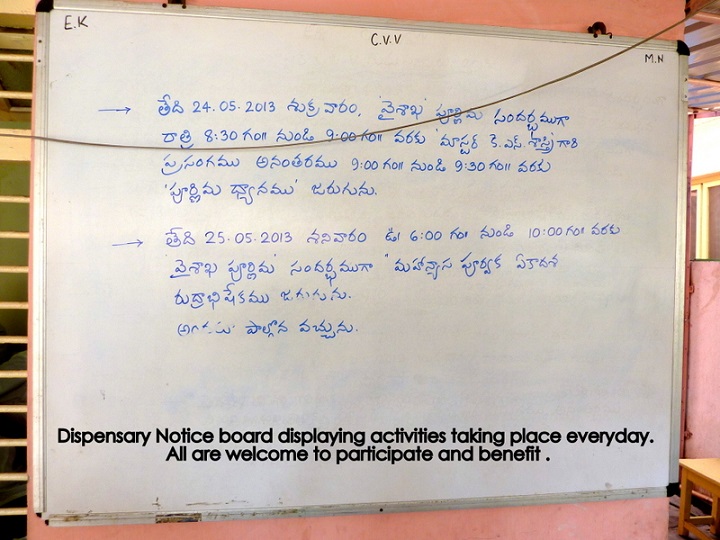 E.K
C.V.V
M.N
→ తేది 24.05.2013 శుక్రవారం, 'వైశాఖ' పూర్ణిమ సందర్భముగా
రాత్రి 8:30 గం॥ నుండి 9:00 గం॥ వరకు 'మాస్టర్ కె.ఎస్. శాస్త్రి' గారి
ప్రసంగము అనంతరము 9:00 గం॥ నుండి 9:30 గం॥ వరకు
'పూర్ణిమ ధ్యానము' జరుగును.
→ తేది 25.05.2013 శనివారం ఉ॥ 6:00 గం॥ నుండి 10:00 గం॥ వరకు
'వైశాఖ పూర్ణిమ' సందర్భముగా "మహాన్యాస పూర్వక ఏకాదశ
రుద్రాభిషేకము జరుగును.
పాల్గొన వచ్చును.
Dispensary Notice board displaying activities taking place everyday.
All are welcome to participate and benefit .